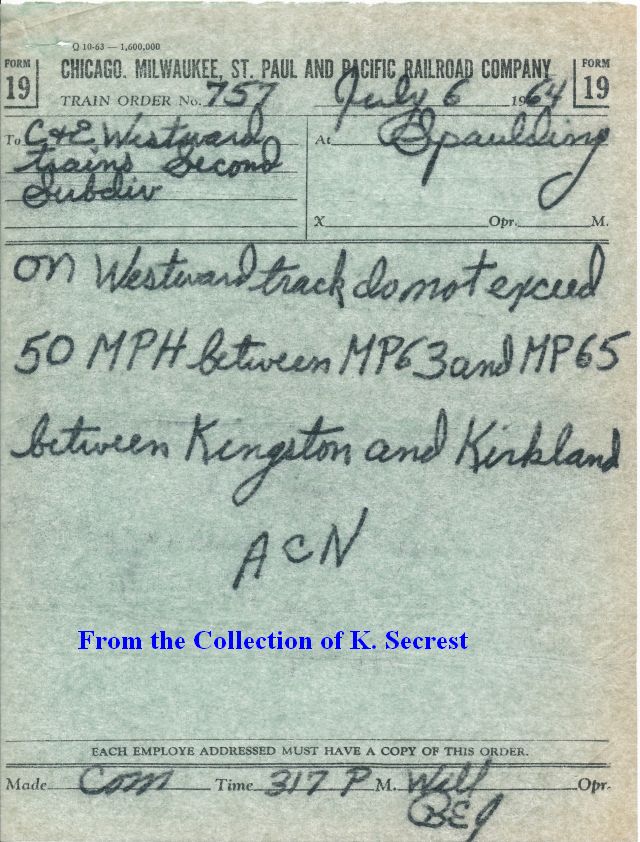 Q 10-63 — 1,600,000
FORM 19 CHICAGO. MILWAUKEE, ST. PAUL AND PACIFIC RAILROAD COMPANY FORM 19
TRAIN ORDER No. 757 July 6 1964
To C&E Westward At Spaulding
trains Second
Subdiv
X Opr. M.
On Westward track do not exceed
50 MPH between MP63 and MP65
between Kingston and Kirkland
ACN
From the Collection of K. Secrest
EACH EMPLOYE ADDRESSED MUST HAVE A COPY OF THIS ORDER.
Made Com Time 317 P M. Will Opr.